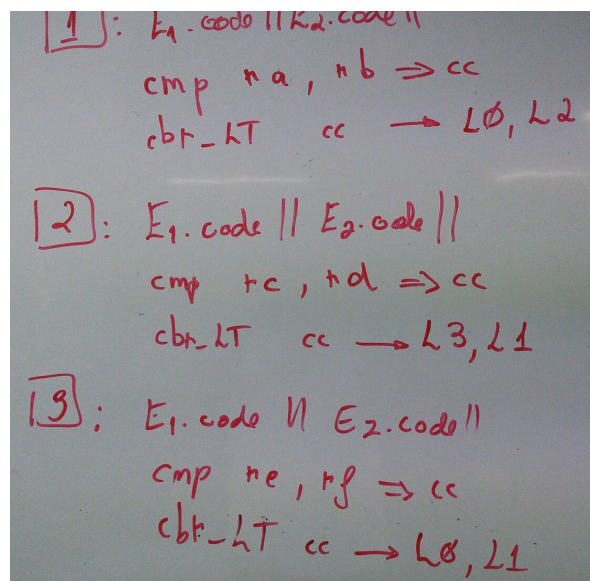 1 : E1.code || E2.code ||
cmp ra, rb => cc
cbr_LT cc → LØ, L2
2 : E1.code || E2.code ||
cmp rc, rd => cc
cbr_LT cc → L3, L1
3 : E1.code || E2.code ||
cmp re, rf => cc
cbr_LT cc → LØ, L1